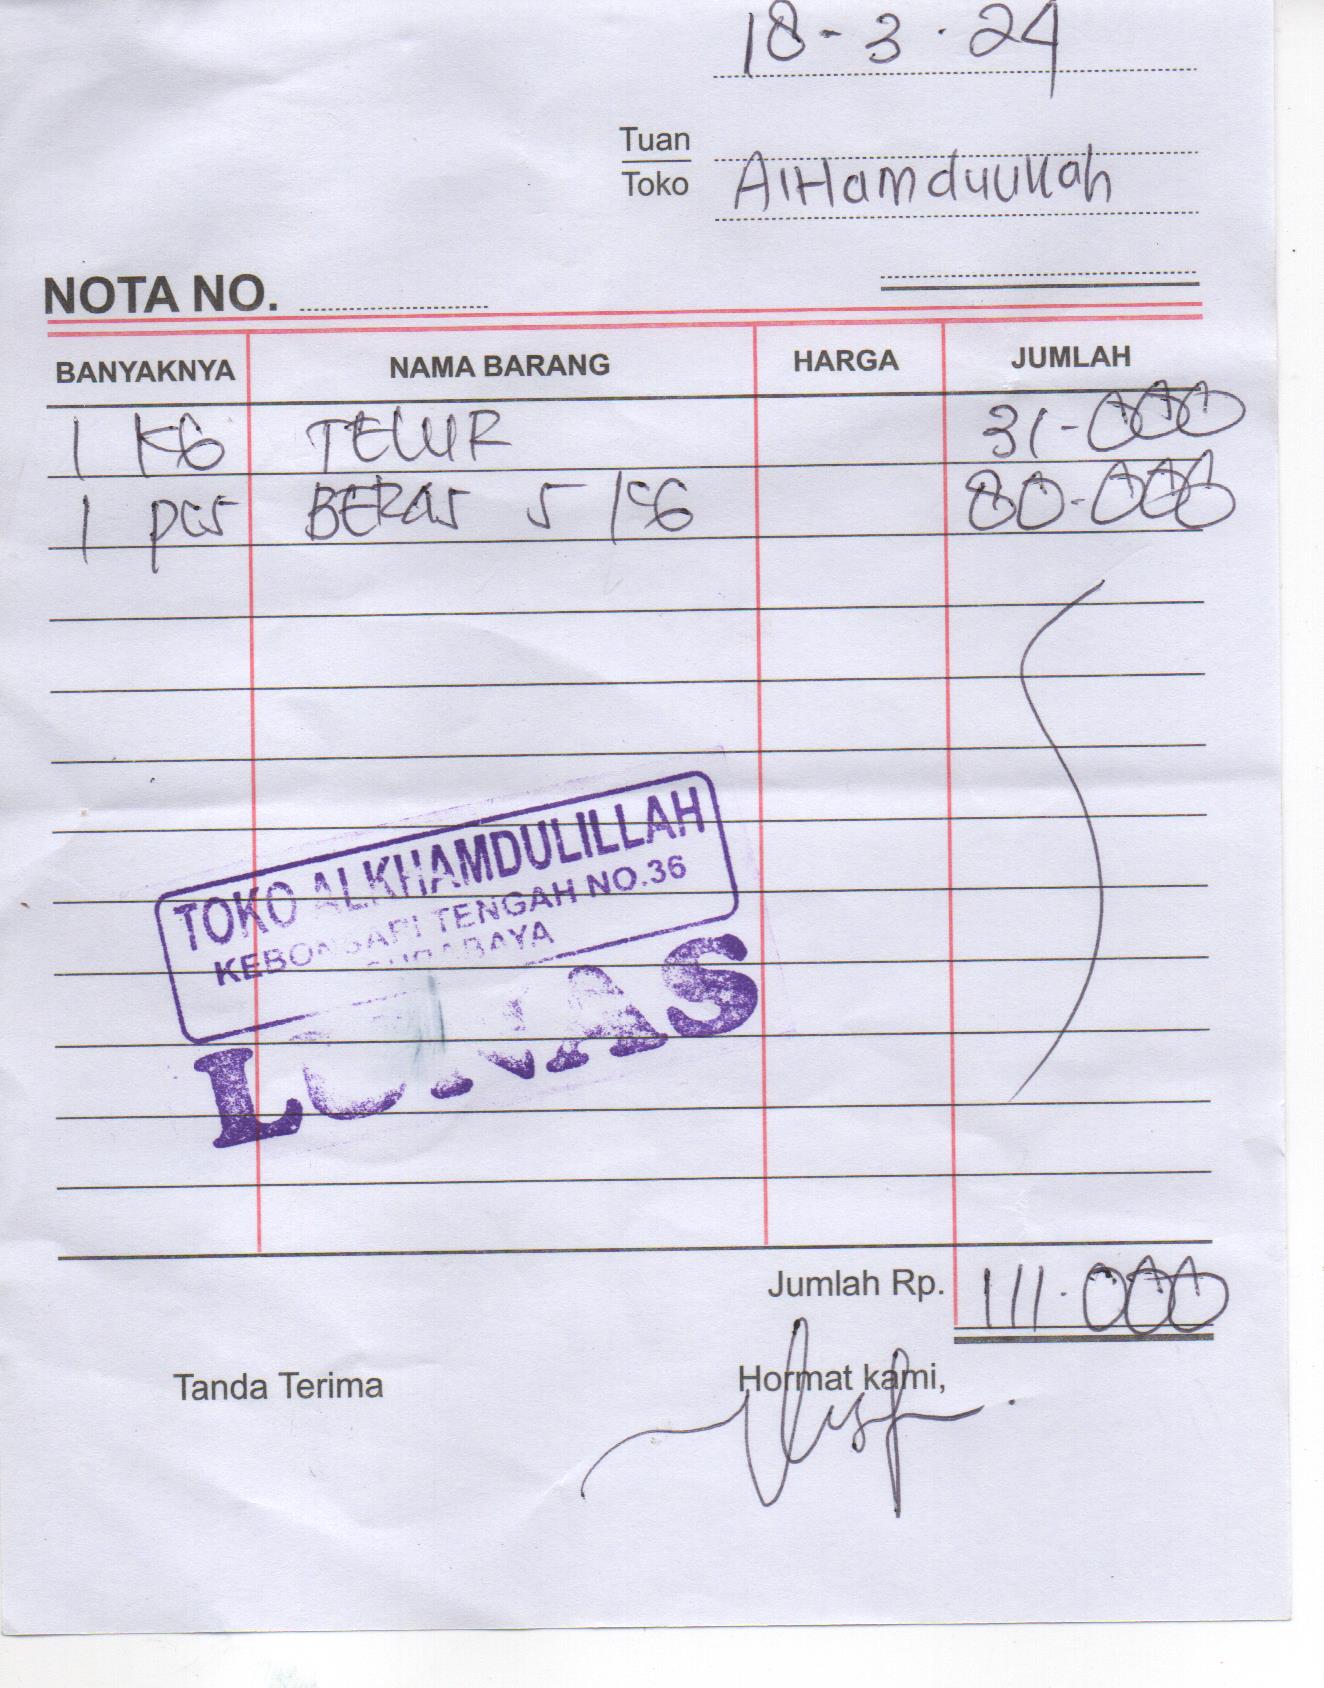 18-3-24
Tuan
Toko AlHamdulillah
NOTA NO.
BANYAKNYA NAMA BARANG HARGA JUMLAH
1 KG TELUR 31-000
1 pcs BERAS 5 KG 80-000
TOKO ALKHAMDULILLAH
KEBONSARI TENGAH NO.36
SURABAYA
LUNAS
Jumlah Rp. 111.000
Tanda Terima Hormat kami,